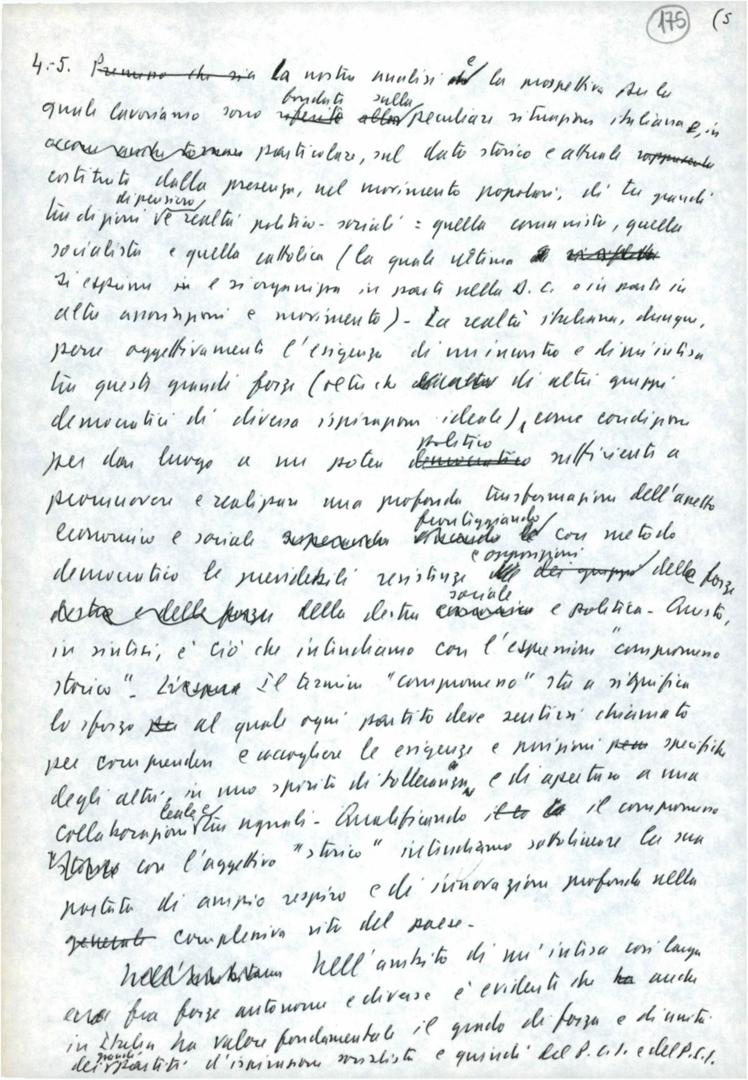 175 (5
4.-5. Premesso che sia la nostra analisi è la prospettiva per la
quale lavoriamo sono riferite alla fondati sulla peculiare situazione italiana e, in
particolare, sul dato storico e attuale rappresentato
costituito dalla presenza, nel movimento popolare, di tre grandi
tradizioni di pensiero e realtà politico-sociali: quella comunista, quella
socialista e quella cattolica (la quale ultima
si esprime in e si organizza in parte nella D.C. e in parte in
altre associazioni e movimento). La realtà italiana, dunque,
pone oggettivamente l'esigenza di un incontro e di un'intesa
tra queste grandi forze (oltre che di altri gruppi
democratici di diversa ispirazione ideale), come condizione
per dar luogo a un potere democratico politico sufficiente a
promuovere e realizzare una profonda trasformazione dell'assetto
economico e sociale superando vincendo le fronteggiando con metodo
democratico le prevedibili resistenze e opposizioni dei gruppi delle forze
destra e delle forze della destra economica sociale e politica. Questo,
in sintesi, è ciò che intendiamo con l'espressione "compromesso
storico". Il termine "compromesso" sta a significare
lo sforzo per al quale ogni partito deve sentirsi chiamato
per comprendere e accogliere le esigenze e posizioni specifiche
degli altri, in uno spirito di tolleranza, e di apertura a una
collaborazione leale e tra uguali. Qualificando il compromesso
storico con l'aggettivo "storico" intendiamo sottolineare la sua
portata di ampio respiro e di innovazione profonda nella
generale complessiva vita del paese.
Nell'ambito di un'intesa così larga
fra forze autonome e diverse è evidente che ha anche
in Italia ha valore fondamentale il grado di forza e di unità
dei grandi partiti d'ispirazione socialista e quindi del P.C.I. e del P.S.I.